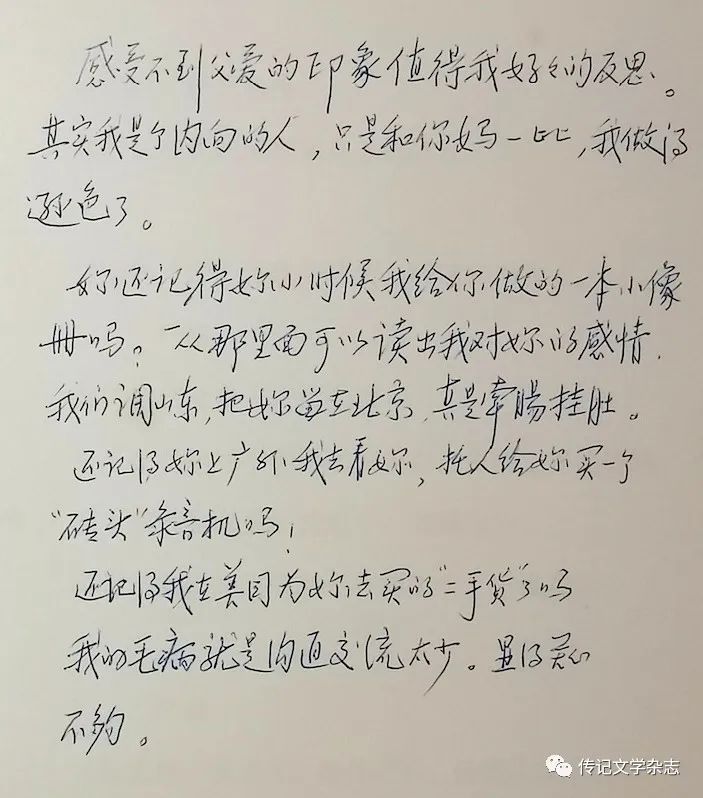 感受不到父爱的印象值得我好好的反思。
其实我是个内向的人，只是和你妈一比，我做得
逊色了。
妳还记得妳小时候我给你做的一本小像
册吗？从那里面可以读出我对妳的感情，
我们调山东，把妳留在北京，真是牵肠挂肚。
还记得妳上广外我去看妳，托人给妳买一个
“砖头”录音机吗！
还记得我在美国为妳去买的“二手货”了吗
我的毛病就是沟通交流太少。显得关心
不够。
传记文学杂志